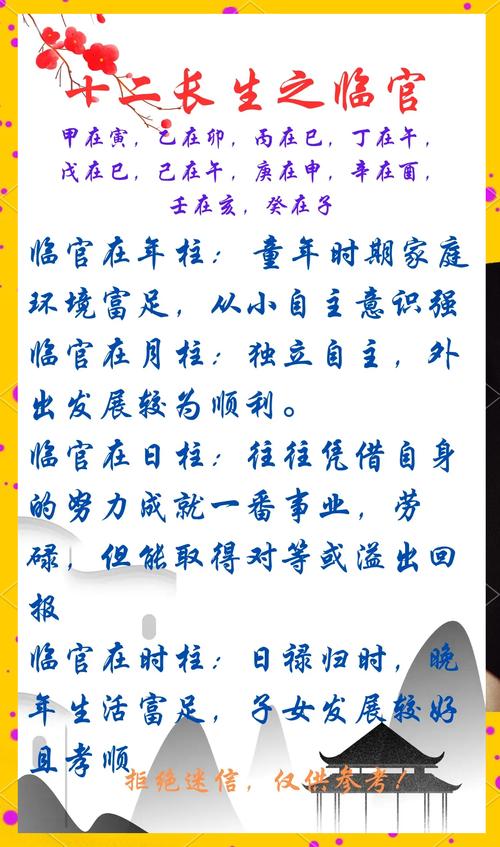 十二长生之临官
甲在寅，乙在卯，丙在巳，丁在午，
戊在巳，己在午，庚在申，辛在酉，
壬在亥，癸在子
临官在年柱：童年时期家庭
环境富足，从小自主意识强
临官在月柱：独立自主，外
出发展较为顺利。
临官在日柱：往往凭借自身
的努力成就一番事业，劳
碌，但能取得对等或溢出回
报
临官在时柱：日禄归时，晚
年生活富足，子女发展较好
且孝顺
拒绝迷信，仅供参考！